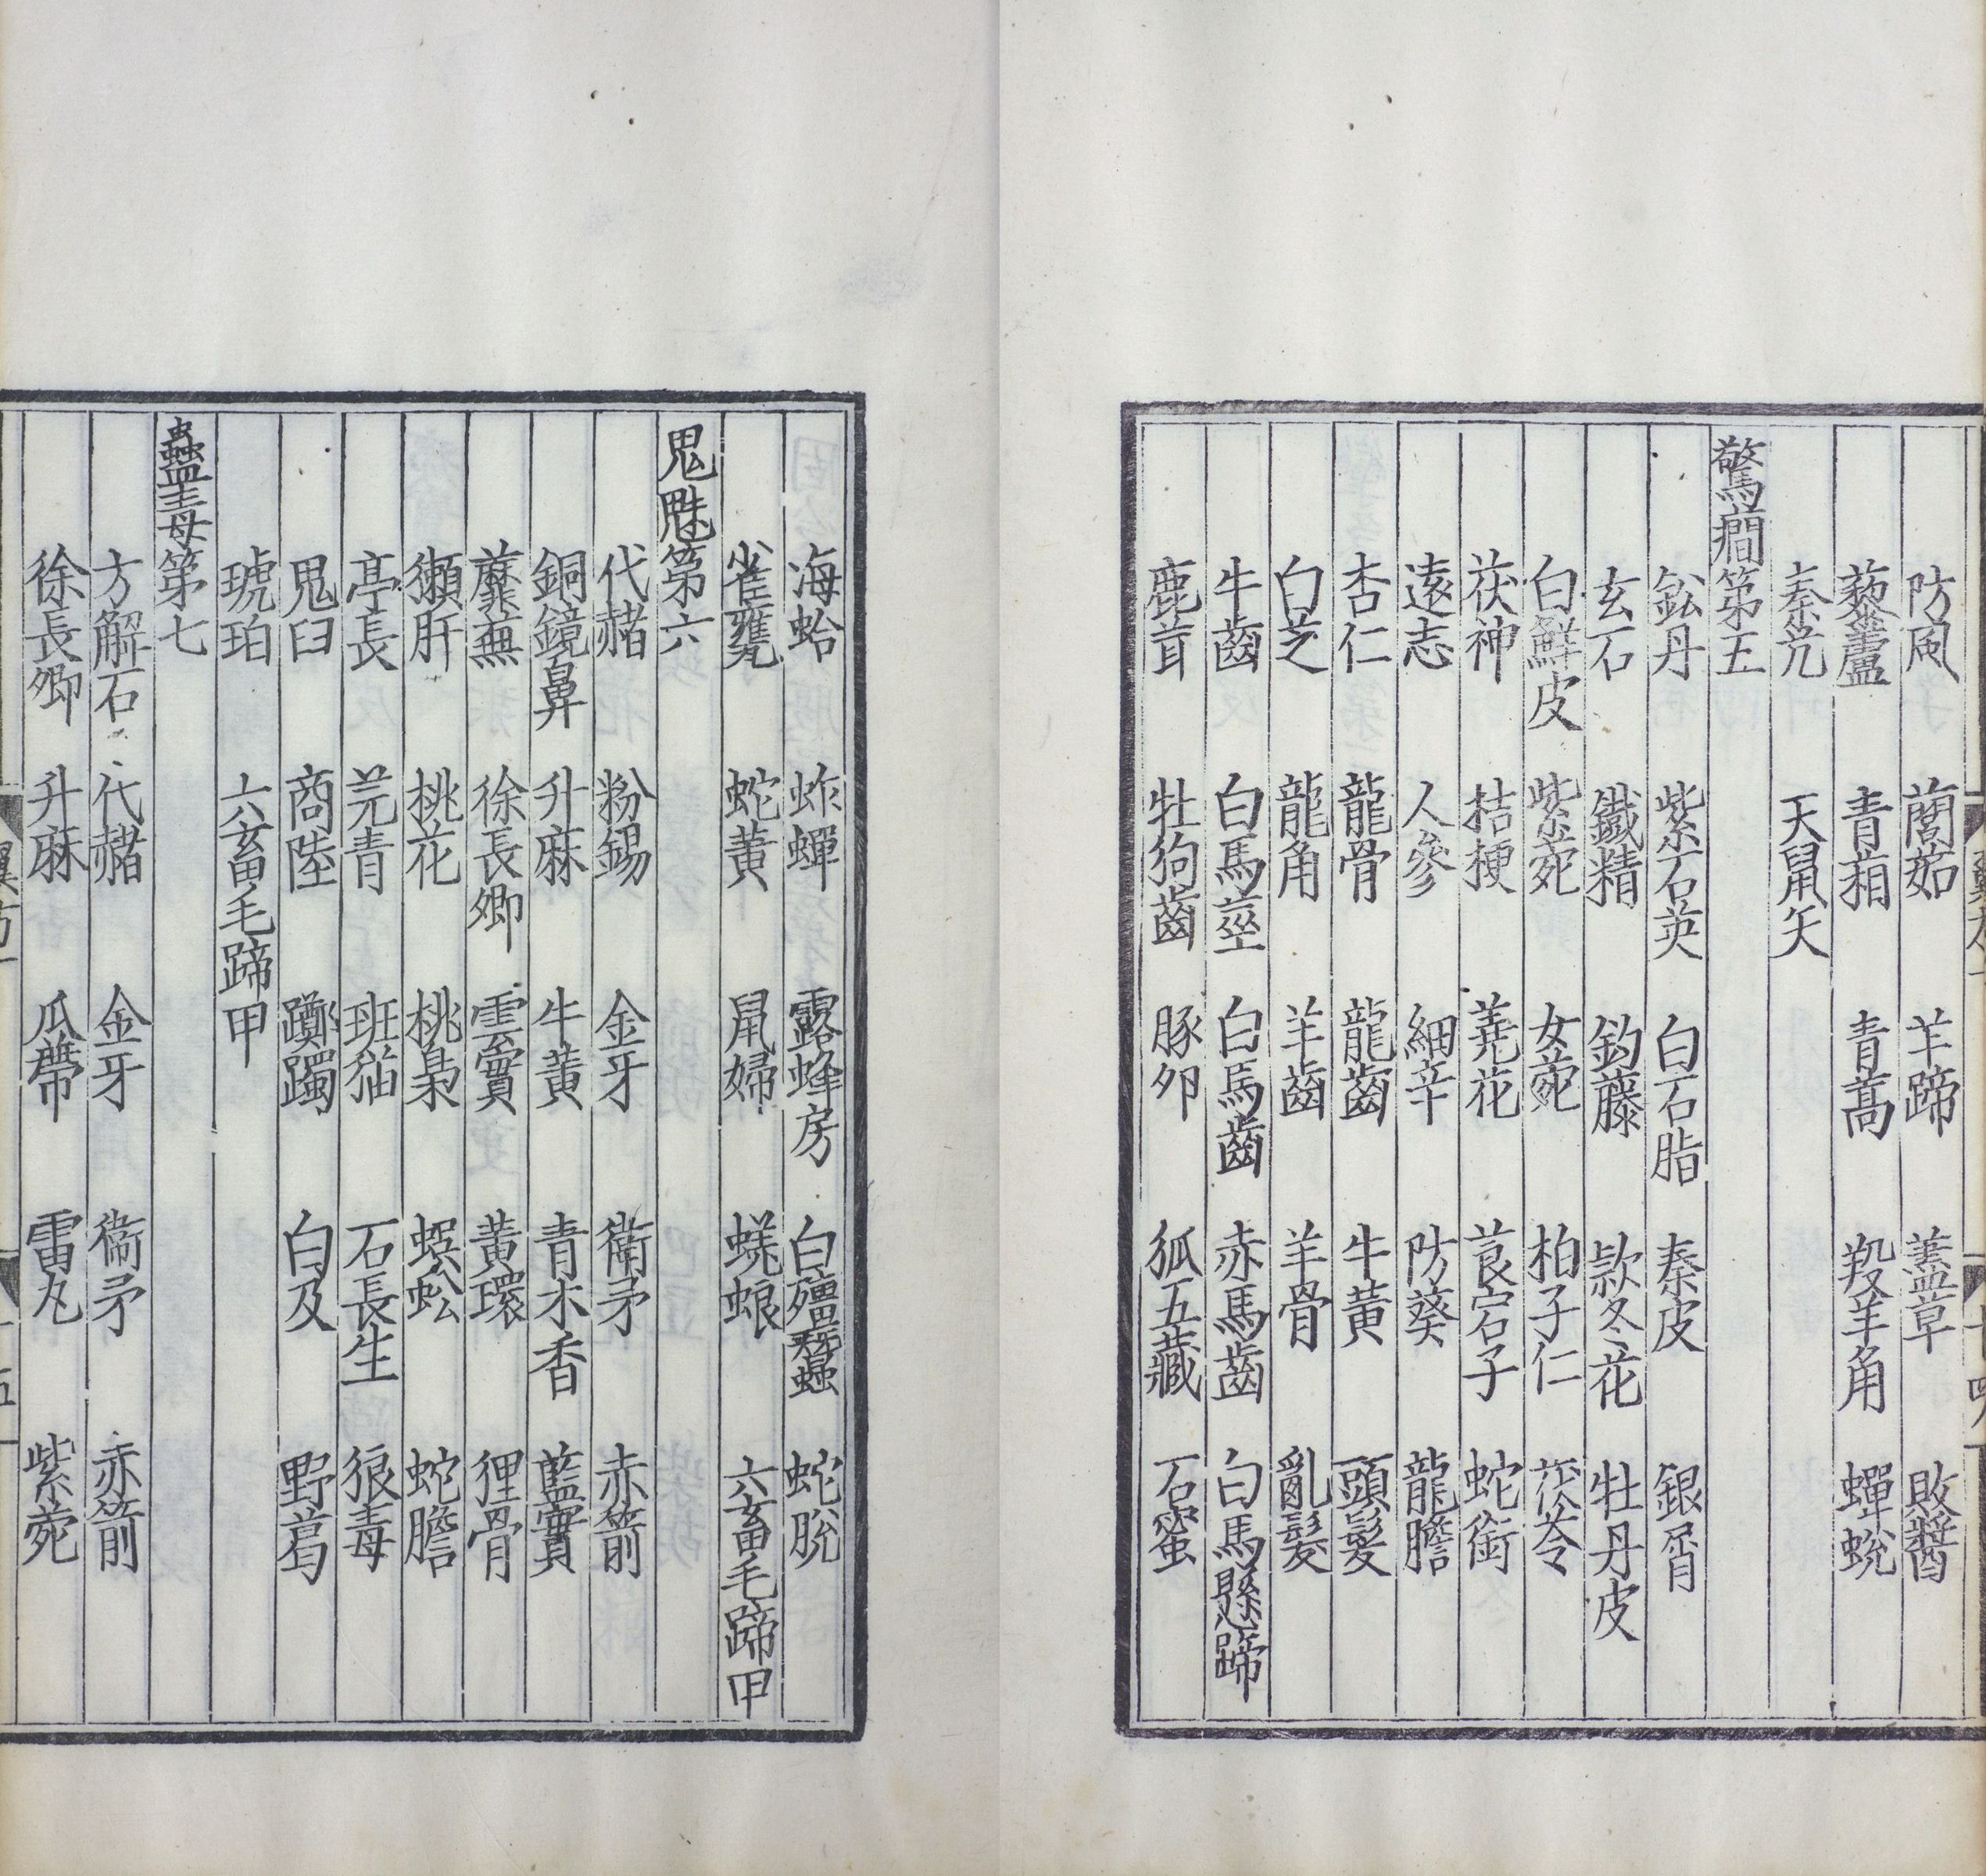 防風 䕡茹 羊蹄 蓋草 敗醬
藜蘆 青葙 青蒿 羖羊角 蟬蛻
秦艽 天鼠矢
驚癇第五
鈆丹 紫石英 白石脂 秦皮 銀屑
玄石 鐵精 釣藤 款冬花 牡丹皮
白鮮皮 紫菀 女菀 柏子仁 茯苓
茯神 桔梗 蕘花 莨宕子 蛇銜
遠志 人參 細辛 防葵 龍膽
杏仁 龍骨 龍齒 牛黃 頭髮
白芝 龍角 羊齒 羊骨 亂髮
牛齒 白馬莖 白馬齒 赤馬齒 白馬懸蹄
鹿茸 牡狗齒 豚卵 狐五藏 石蜜
海蛤 蚱蟬 露蜂房 白殭蠶 蛇脫
雀甕 蛇黃 鼠婦 蜣蜋 六畜毛蹄甲
鬼魅第六
代赭 粉錫 金牙 衞矛 赤箭
銅鏡鼻 升麻 牛黃 青木香 藍實
蘼蕪 徐長卿 雲實 黃環 狸骨
獺肝 桃花 桃梟 蜈蚣 蛇膽
亭長 芫青 班猫 石長生 狼毒
鬼臼 商陸 躑躅 白及 野葛
琥珀 六畜毛蹄甲
蠱毒第七
方解石 代赭 金牙 衞矛 赤箭
徐長卿 升麻 瓜蔕 雷丸 紫菀